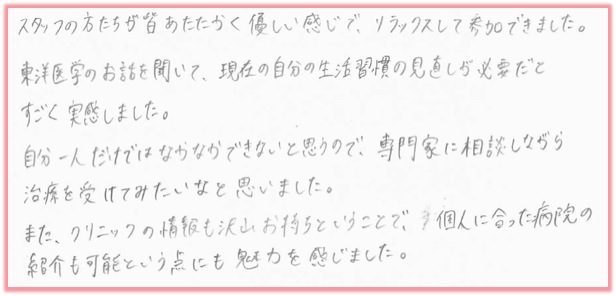 スタッフの方たちが皆あたたかく優しい感じで、リラックスして参加できました。
東洋医学のお話を聞いて、現在の自分の生活習慣の見直しが必要だと
すごく実感しました。
自分一人だけではなかなかできないと思うので、専門家に相談しながら
治療を受けてみたいなと思いました。
また、クリニックの情報も沢山お持ちということで、個人に合った病院の
紹介も可能という点にも魅力を感じました。